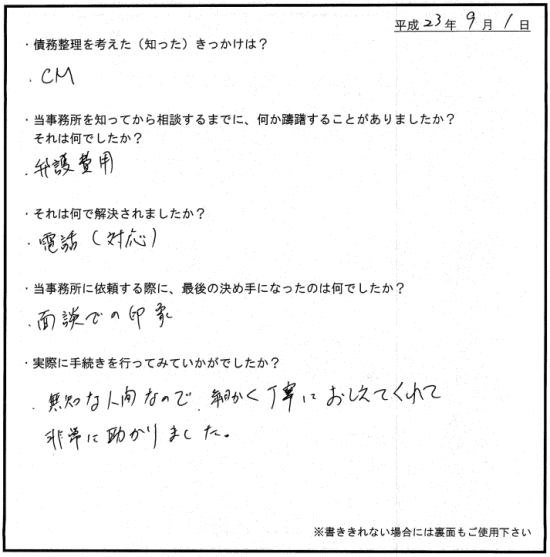 平成23年9月1日
・債務整理を考えた（知った）きっかけは？
・CM
・当事務所を知ってから相談するまでに、何か躊躇することがありましたか？
それは何でしたか？
・弁護費用
・それは何で解決されましたか？
・電話（対応）
・当事務所に依頼する際に、最後の決め手になったのは何でしたか？
・面談での印象
・実際に手続きを行ってみていかがでしたか？
・無知な人間なので、細かく丁寧におしえてくれて
非常に助かりました。
※書ききれない場合には裏面もご使用下さい